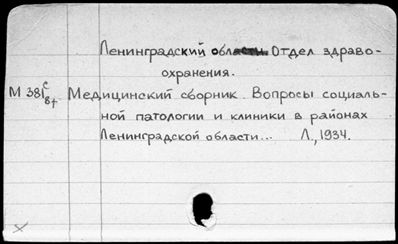 Ленинградский област. Отдел здраво-
охранения.
М 381 с/8т Медицинский сборник. Вопросы социаль-
ной патологии и клиники в районах
Ленинградской области... Л., 1934.